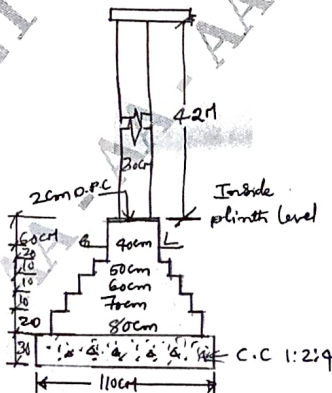 4.2M
30cm
2cm D.P.C
Inside
plinth level
60cm
G L
40cm
20
10
10
10
20
30
50cm
60cm
70cm
80cm
C.C 1:2:4
110cm